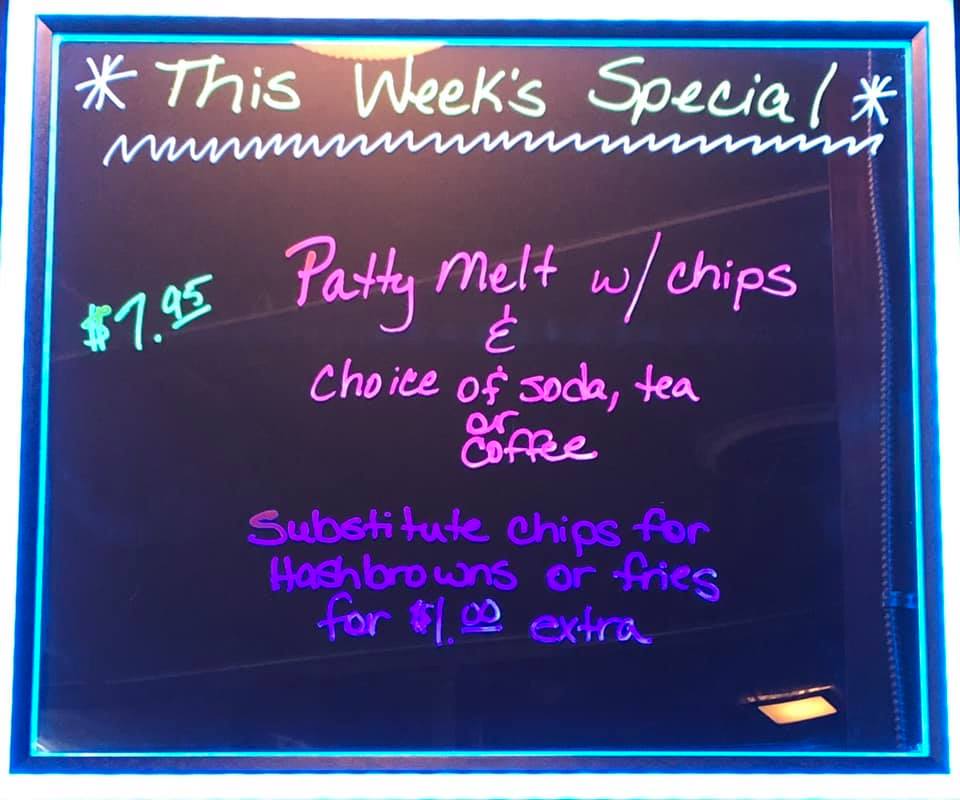 * This Week's Special *
$7.95
Patty Melt w/ chips
&
Choice of soda, tea
or
Coffee
Substitute chips for
Hashbrowns or fries
for $1.00 extra